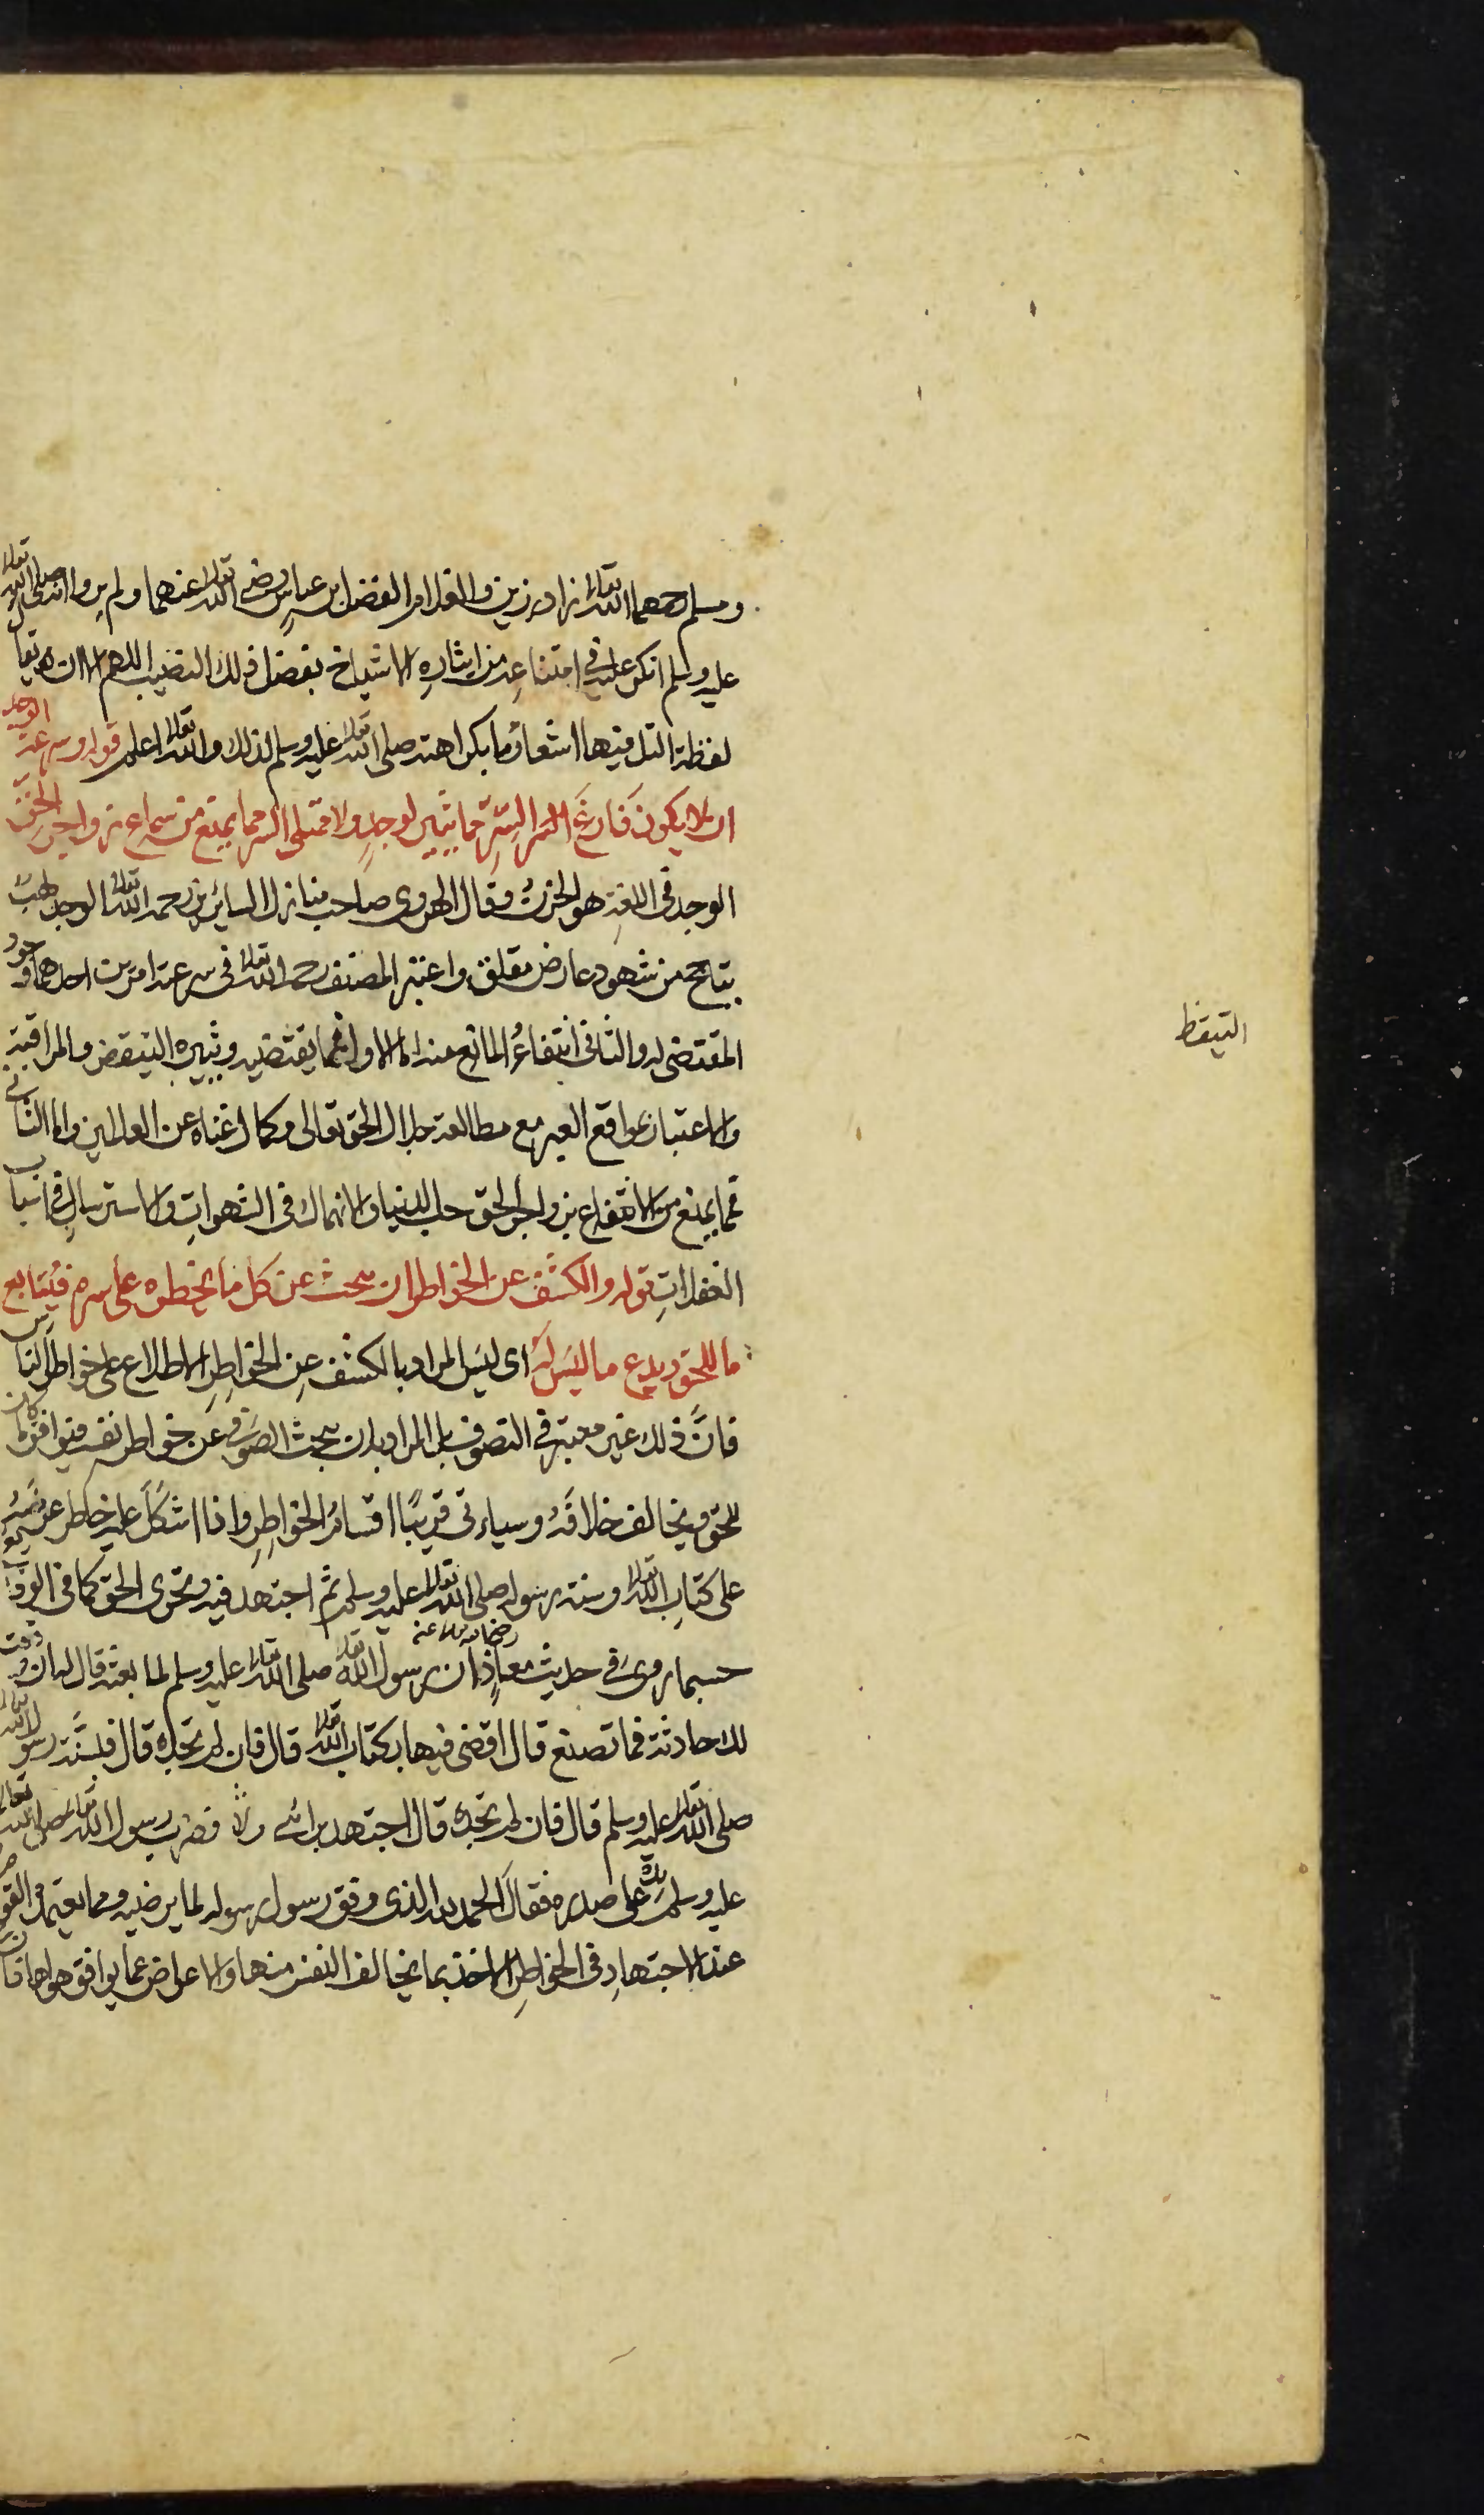 ومسلم رحمهما الله تعالى زاد رزين والغلام الفضل بن عباس رضي الله تعالى عنهما ولم يروا انه صلى الله تعالى
عليه وسلم انكر عليه في امتناعه من ايثاره الاشياخ بفضل ذلك النصيب اللهم الا ان
لفظة التل فيها اشعار ما بكراهته صلى الله تعالى عليه وسلم لذلك والله تعالى اعلم قوله وسرعة الوجد
ان لا يكون فارغ السر السر مما يثير لوجد ولا ممتلى السر مما يمنع من سماع زواجر الحق
الوجد في اللغة هو الحزن وقال الهروي صاحب منازل السائرين رحمه الله تعالى الوجد لهب
يتاجج من شهود عارض مقلق واعتبر المصنف رحمه الله تعالى في سرعته امرين احدهما وجود
المقتضى له والثاني انتفاء المانع منه اما الاول فما يقتضيه ويثيره التيقض والمراقبة
والاعتبار بمواقع العبر مع مطالعة جلال الحق تعالى وكمال غناه عن العالمين واما الثاني
فما يمنع من الانتفاع بزواجر الحق حب الدنيا والانهماك في الشهوات والاسترسال في اسباب
الغفلات قوله والكشف عن الخواطر ان يبحث عن كل ما يخطر على سره فيتابع
ما للحق ويدع ما ليس له اى ليس المراد بالكشف عن الخواطر الاطلاع على خواطر الناس
فان ذلك غير معتبر في التصوف بل المراد ان يبحث الصوفي عن خواطر نفسه فيوافق ما كان
للحق ويخالف خلافه وسياتى قريبا اقسام الخواطر واذا اشكل عليه خاطر عرضه
على كتاب الله تعالى وسنة رسوله صلى الله تعالى عليه وسلم ثم اجتهد فيه وتحرى الحق كما في
حسبما روى في حديث معاذ رضي الله تعالى عنه ان رسول الله تعالى صلى الله تعالى عليه وسلم لما بعثه قال له ان وقعت
لك حادثة فما تصنع قال اقضى فيها بكتاب الله تعالى قال فان لم تجده قال فبسنة رسول الله تعالى
صلى الله تعالى عليه وسلم قال فان لم تجده قال اجتهد برائى قال فضرب رسول الله تعالى صلى الله تعالى
عليه وسلم يده على صدره فقال الحمد لله الذى وفق رسول رسوله لما يرضيه ومما يعتمد
عند الاجتهاد في الخواطر الاخذ بما يخالف النفس منها والاعراض عما يوافق هواها فان
التيقظ